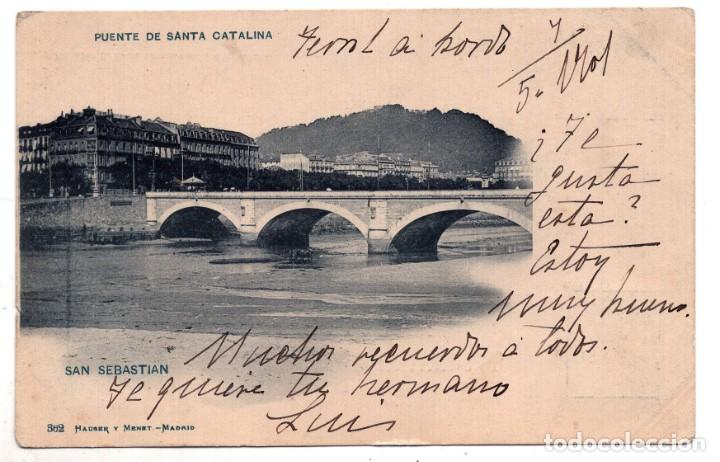 PUENTE DE SANTA CATALINA
Ferrol á bordo
¿Te
gusta
esta?
Estoy
muy bueno.
Muchos recuerdos á todos.
Te quiere tu hermano
Luis
SAN SEBASTIAN
352 HAUSER Y MENET - MADRID
todocoleccion.net